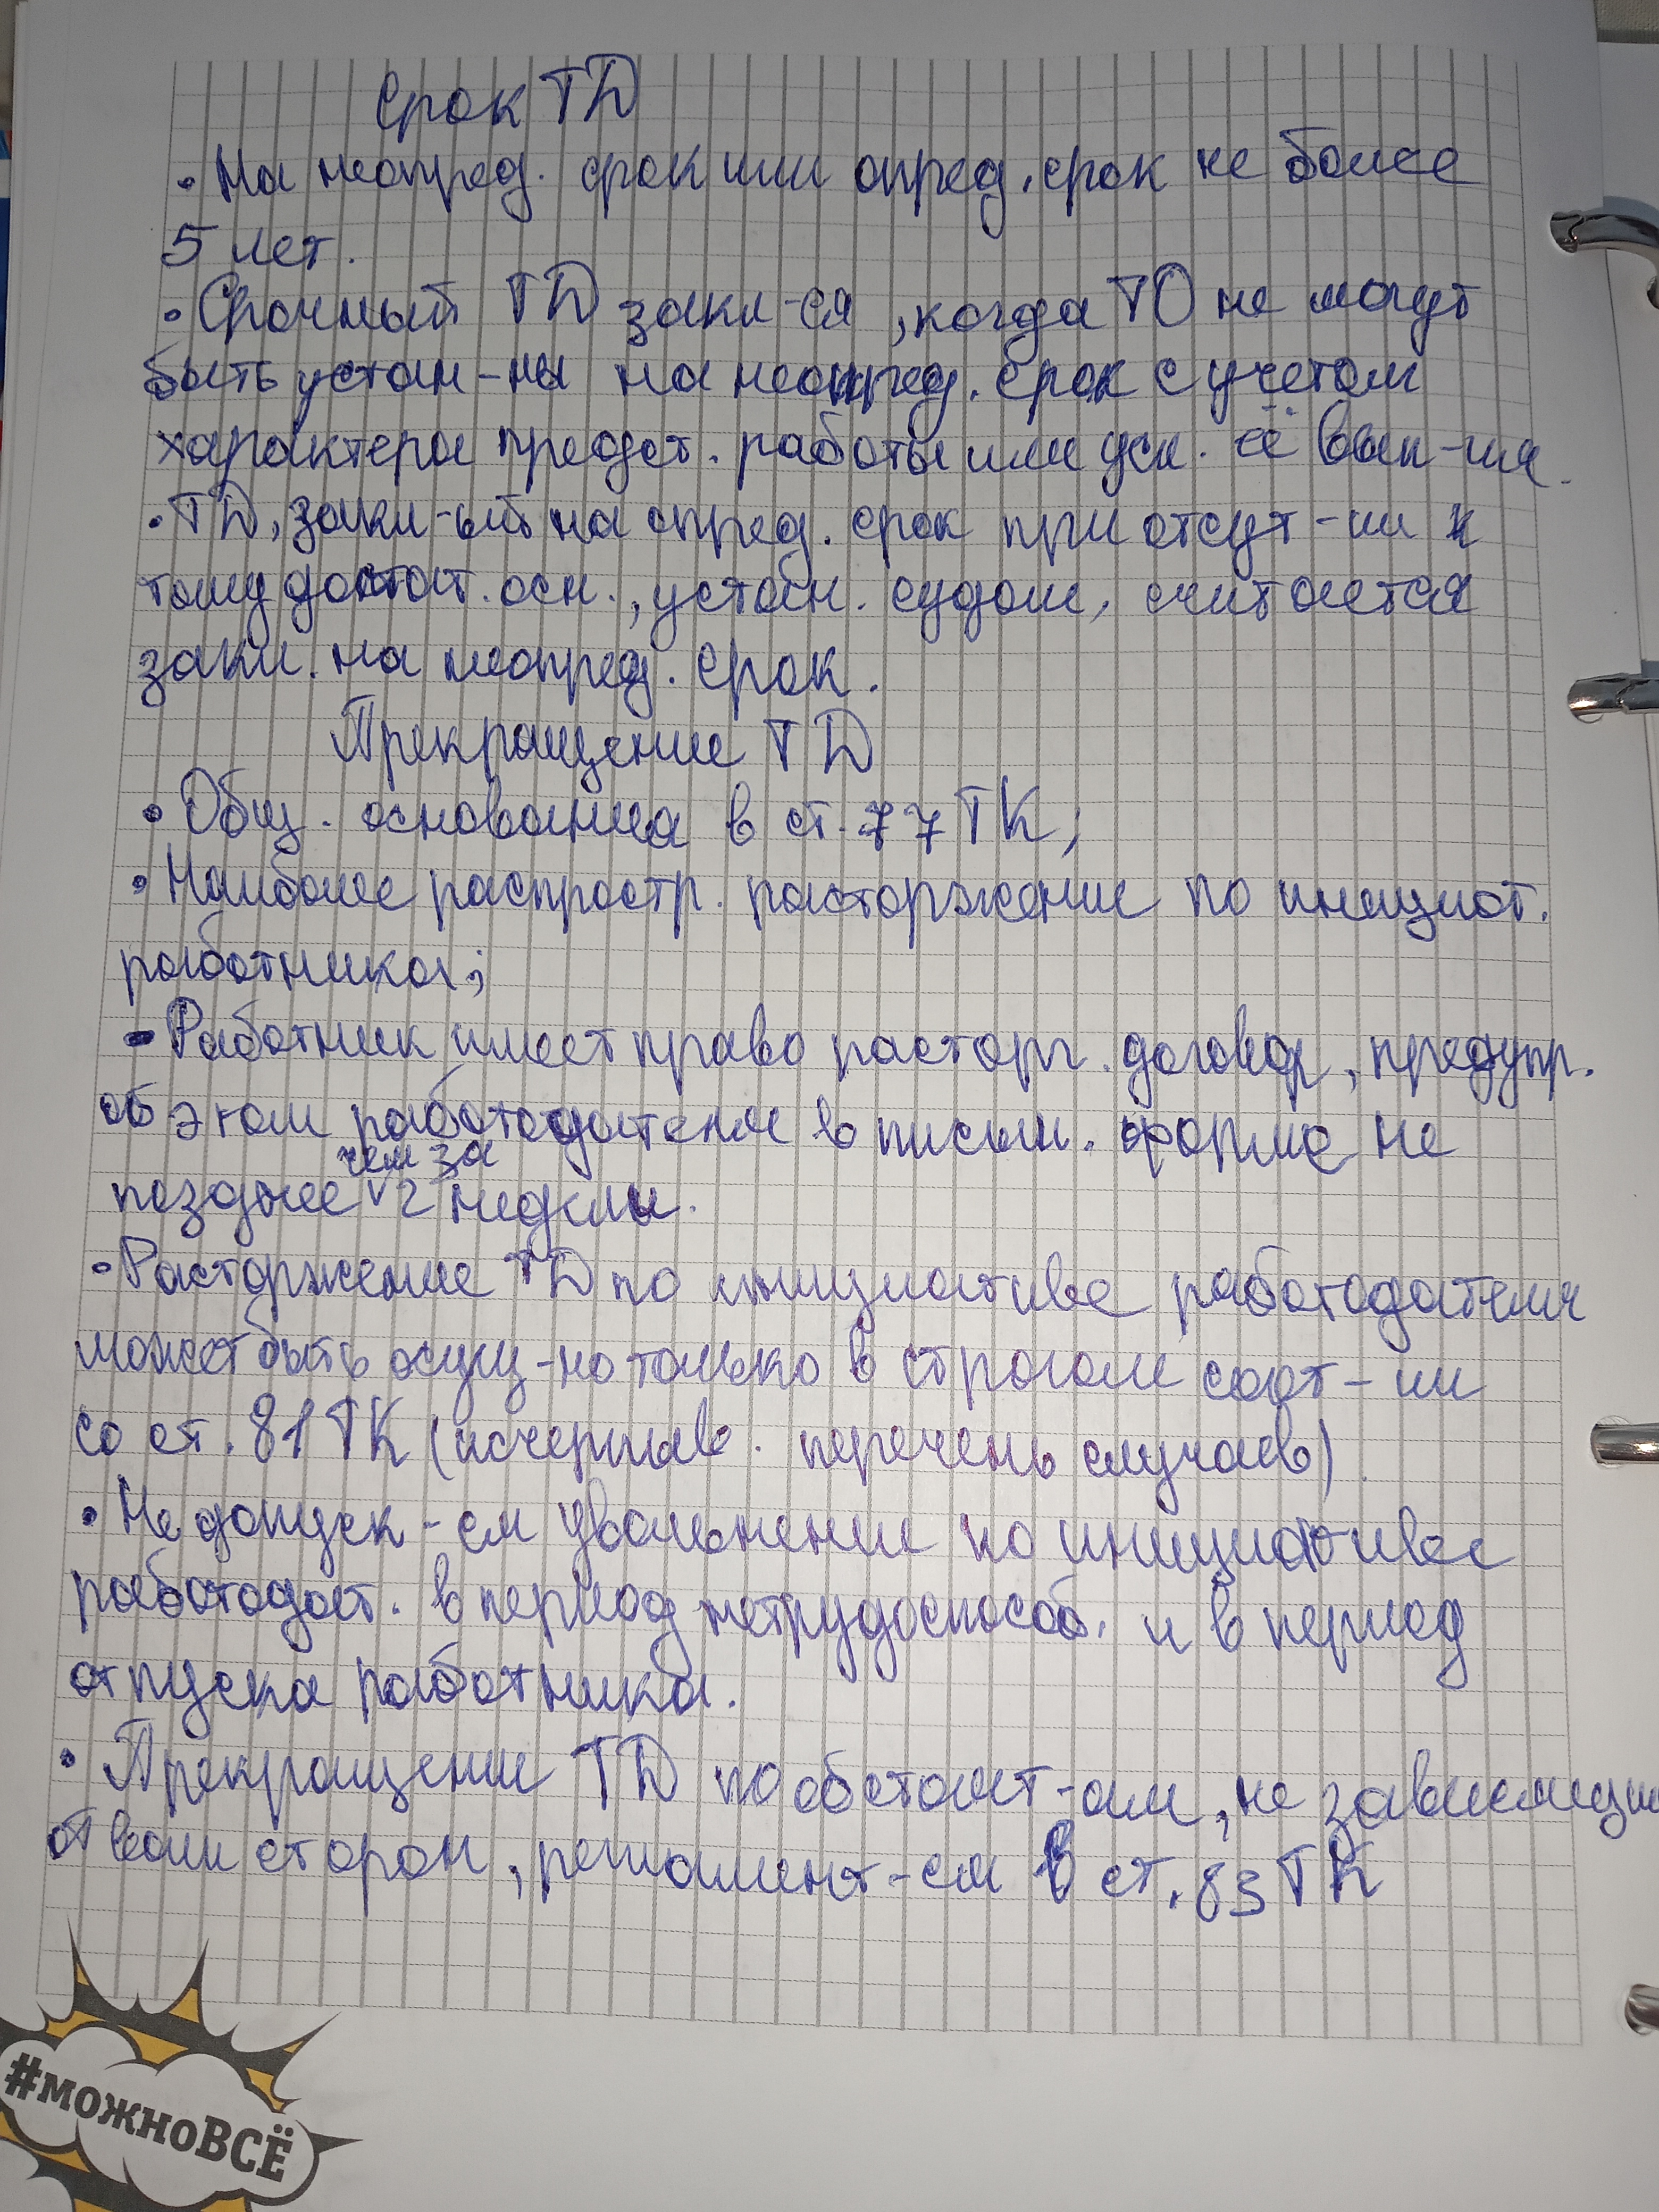 Срок ТД
• На неопред. срок или опред. срок не более
5 лет.
• Срочный ТД закл-ся, когда ТО не могут
быть устан-ны на неопред. срок с учетом
характера предст. работы или усл. её вып-ия.
• ТД, закл-ый на опред. срок при отсут-ии к
тому достат. осн., устан. судом, считается
закл. на неопред. срок.
Прекращение ТД
• Общ. основания в ст. 77 ТК;
• Наиболее распростр. расторжение по инициат.
работника;
- Работник имеет право расторг. договор, предупр.
об этом работодателя в письм. форме не
чем за
позднее √ 2 недели.
• Расторжение ТД по инициативе работодателя
может быть осущ-но только в строгом соот-ии
со ст. 81 ТК (исчерпыв. перечень случаев)
• Не допуск-ся увольнение по инициативе
работодат. в период нетрудоспособ. и в период
отпуска работника.
• Прекращение ТД по обстоят-ам, не зависящи
от воли сторон, регламент-ся в ст. 83 ТК
#можноВСЁ